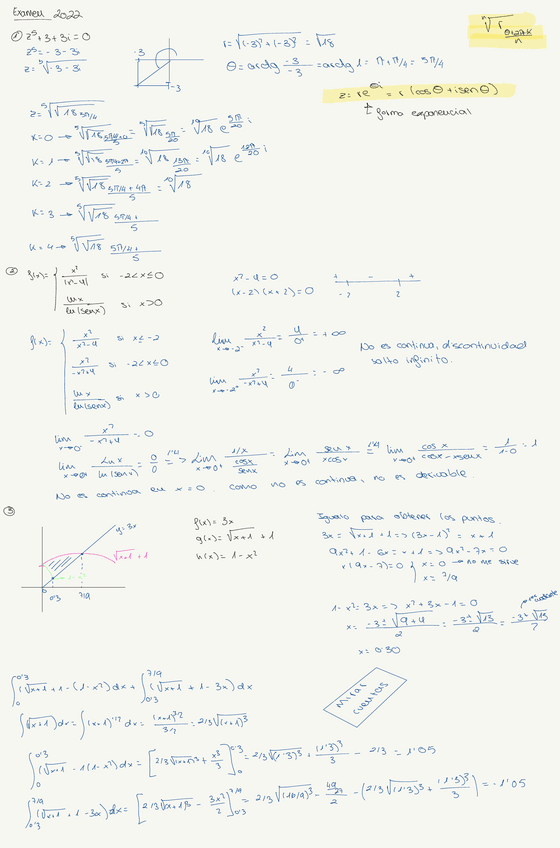 Examen 2022
① z⁵+3+3i=0
z⁵=-3-3i
z=⁵√-3-3i
-3
-3
r=√(-3)²+(-3)²=√18
θ=arctg -3/-3 = arctg 1 = π+π/4 = 5π/4
ⁿ√r θ+2πK/n
z=re^θi = r(cosθ+isenθ)
forma exponencial
z=⁵√√18 5π/4
K=0 → ⁵√√18 5π/4+0/5 = ⁵√√18 5π/20 = ¹⁰√18 e^5π/20 i
K=1 → ⁵√√18 5π/4+2π/5 = ¹⁰√18 13π/20 = ¹⁰√18 e^13π/20 i
K=2 → ⁵√√18 5π/4+4π/5 = ¹⁰√18
K=3 → ⁵√√18 5π/4+/5
K=4 → ⁵√√18 5π/4+/5
② f(x)= { x²/|x²-4| si -2<x≤0
lnx/ln(senx) si x>0
x²-4=0
(x-2)(x+2)=0
+ - +
-2 2
f(x)= { x²/x²-4 si x≤-2
x²/-x²+4 si -2<x≤0
lnx/ln(senx) si x>0
lim x→-2⁻ x²/x²-4 = 4/0⁺ = +∞
lim x→-2⁺ x²/-x²+4 = 4/0⁻ = -∞
No es continua, discontinuidad
salto infinito.
lim x→0⁻ x²/-x²+4 = 0
lim x→0⁺ lnx/ln(senx) = 0/0 L'H => lim x→0⁺ 1/x / cosx/senx = lim x→0⁺ senx/xcosx L'H = lim x→0⁺ cosx/cosx-xsenx = 1/1-0 = 1
No es continua en x=0. Como no es continua, no es derivable.
③
y=3x
√x+1+1
0
0'3
7/9
f(x)=3x
g(x)=√x+1+1
h(x)=1-x²
Igualo para obtener los puntos.
3x=√x+1+1=>(3x-1)²=x+1
9x²+1-6x=x+1=>9x²-7x=0
x(9x-7)=0 { x=0 → no me sirve
x=7/9
1-x²=3x=>x²+3x-1=0
x= -3±√9+4/2 = -3±√13/2 = -3+√13/2
x=0'30
∫₀^0'3 (√x+1+1-(1-x²)dx + ∫0'3^7/9 (√x+1+1-3x)dx
Mirar
cuentas
∫(√x+1)dx=∫(x+1)^1/2 dx = (x+1)^3/2 / 3/2 = 2/3√(x+1)³
∫₀^0'3 (√x+1-1(1-x²)dx = [2/3√(x+1)³+x³/3]₀^0'3 = 2/3√(1'3)³+(1'3)³/3 - 2/3 = 1'05
∫0'3^7/9 (√x+1+1-3x)dx = [2/3√(x+1)³-3x²/2]0'3^7/9 = 2/3√(16/9)³-49/27/2-(2/3√(1'3)³+(1'3)³/3) = -1'05